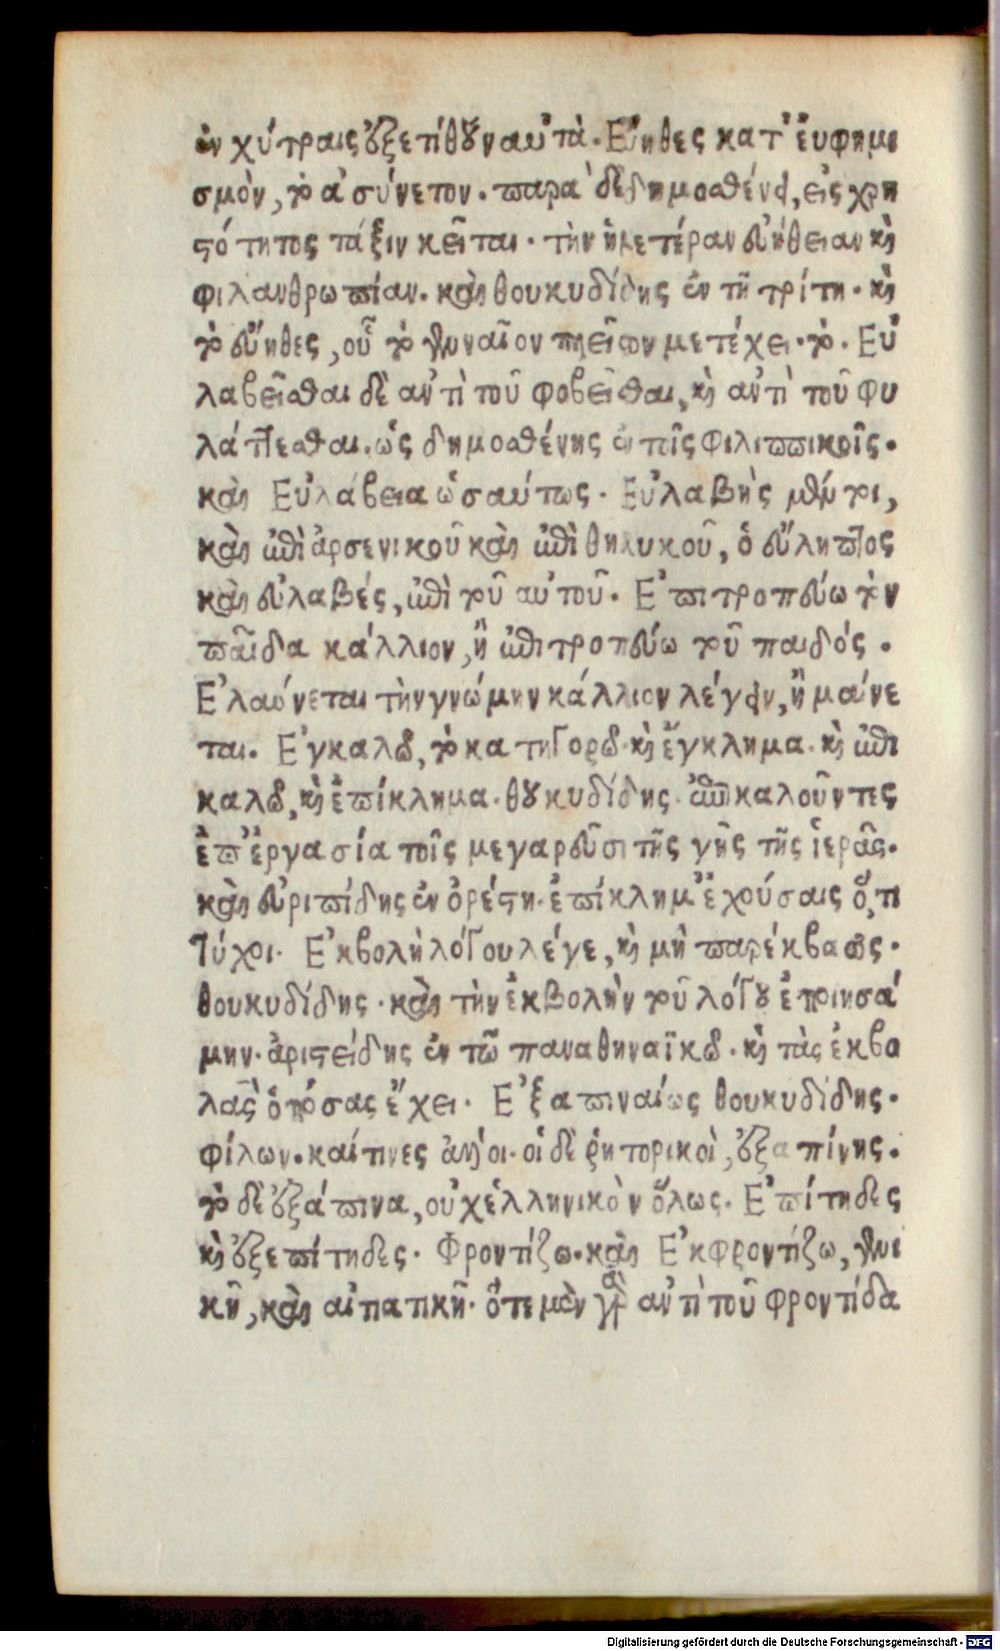 ἐν χύτραις ἐξετίθουν αυτά. Εὔηθες κατ' ἐυφημι
σμὸν, τὸ ἀσύνετον. παρὰ δὲ δημοσθένει, εἰς χρη
στότητος τάξιν κεῖται. τὴν ἡμετέραν εὐήθειαν καὶ
φιλανθρωπίαν. καὶ θουκυδίδης ἐν τῇ τρίτη. καὶ
τὸ εὔηθες, οὗ τὸ γενναῖον πλεῖστον μετέχει. τὸ. Εὐ
λαβεῖσθαι δὲ ἀντὶ τοῦ φοβεῖσθαι, καὶ ἀντὶ τοῦ φυ
λάττεσθαι. ὡς δημοσθένης ἐν τοῖς Φιλιππικοῖς.
καὶ Εὐλάβεια ὡσαύτως. Εὐλαβὴς μέντοι,
καὶ ἐπὶ ἀρσενικοῦ καὶ ἐπὶ θηλυκοῦ, ὁ εὔληπτος
καὶ εὐλαβές, ἐπὶ τοῦ αὐτοῦ. Ἐπιτροπεύω τὸν
παῖδα κάλλιον, ἢ ἐπιτροπεύω τοῦ παιδός.
Ἐλαύνεται τὴν γνώμην κάλλιον λέγειν, ἢ μαίνε
ται. Ἐγκαλῶ, τὸ κατηγορῶ. καὶ ἔγκλημα. καὶ ἐπι
καλῶ, καὶ ἐπίκλημα. θουκυδίδης. ἐπικαλοῦντες
ἐπ' ἐργασία τοῖς μεγαρεῦσι τῆς γῆς τῆς ἱερᾶς.
καὶ εὐριπίδης ἐν ὀρέστη. ἐπίκλημ' ἐχούσαις ὅ,τι
τύχοι. Ἐκβολὴ λόγου λέγε, καὶ μὴ παρέκβασις.
θουκυδίδης. καὶ τὴν ἐκβολὴν τοῦ λόγου ἐποιησά
μην. ἀριστείδης ἐν τῷ παναθηναϊκῶ. καὶ τὰς ἐκβο
λὰς ὁπόσας ἔχει. Ἐξαπιναίως θουκυδίδης.
φίλων. καί τινες ἄλλοι. οἱ δὲ ῥητορικοὶ, ἐξαπίνης.
τὸ δὲ ἐξάπινα, οὐχ ἑλληνικὸν ὅλως. Ἐπίτηδες
καὶ ἐξεπίτηδες. Φροντίζω. καὶ Ἐκφροντίζω, γενι
κῆ, καὶ αἰτιατικῆ. ὅτε μὲν γὰρ ἀντὶ τοῦ φροντίδα
Digitalisierung gefördert durch die Deutsche Forschungsgemeinschaft - DFG